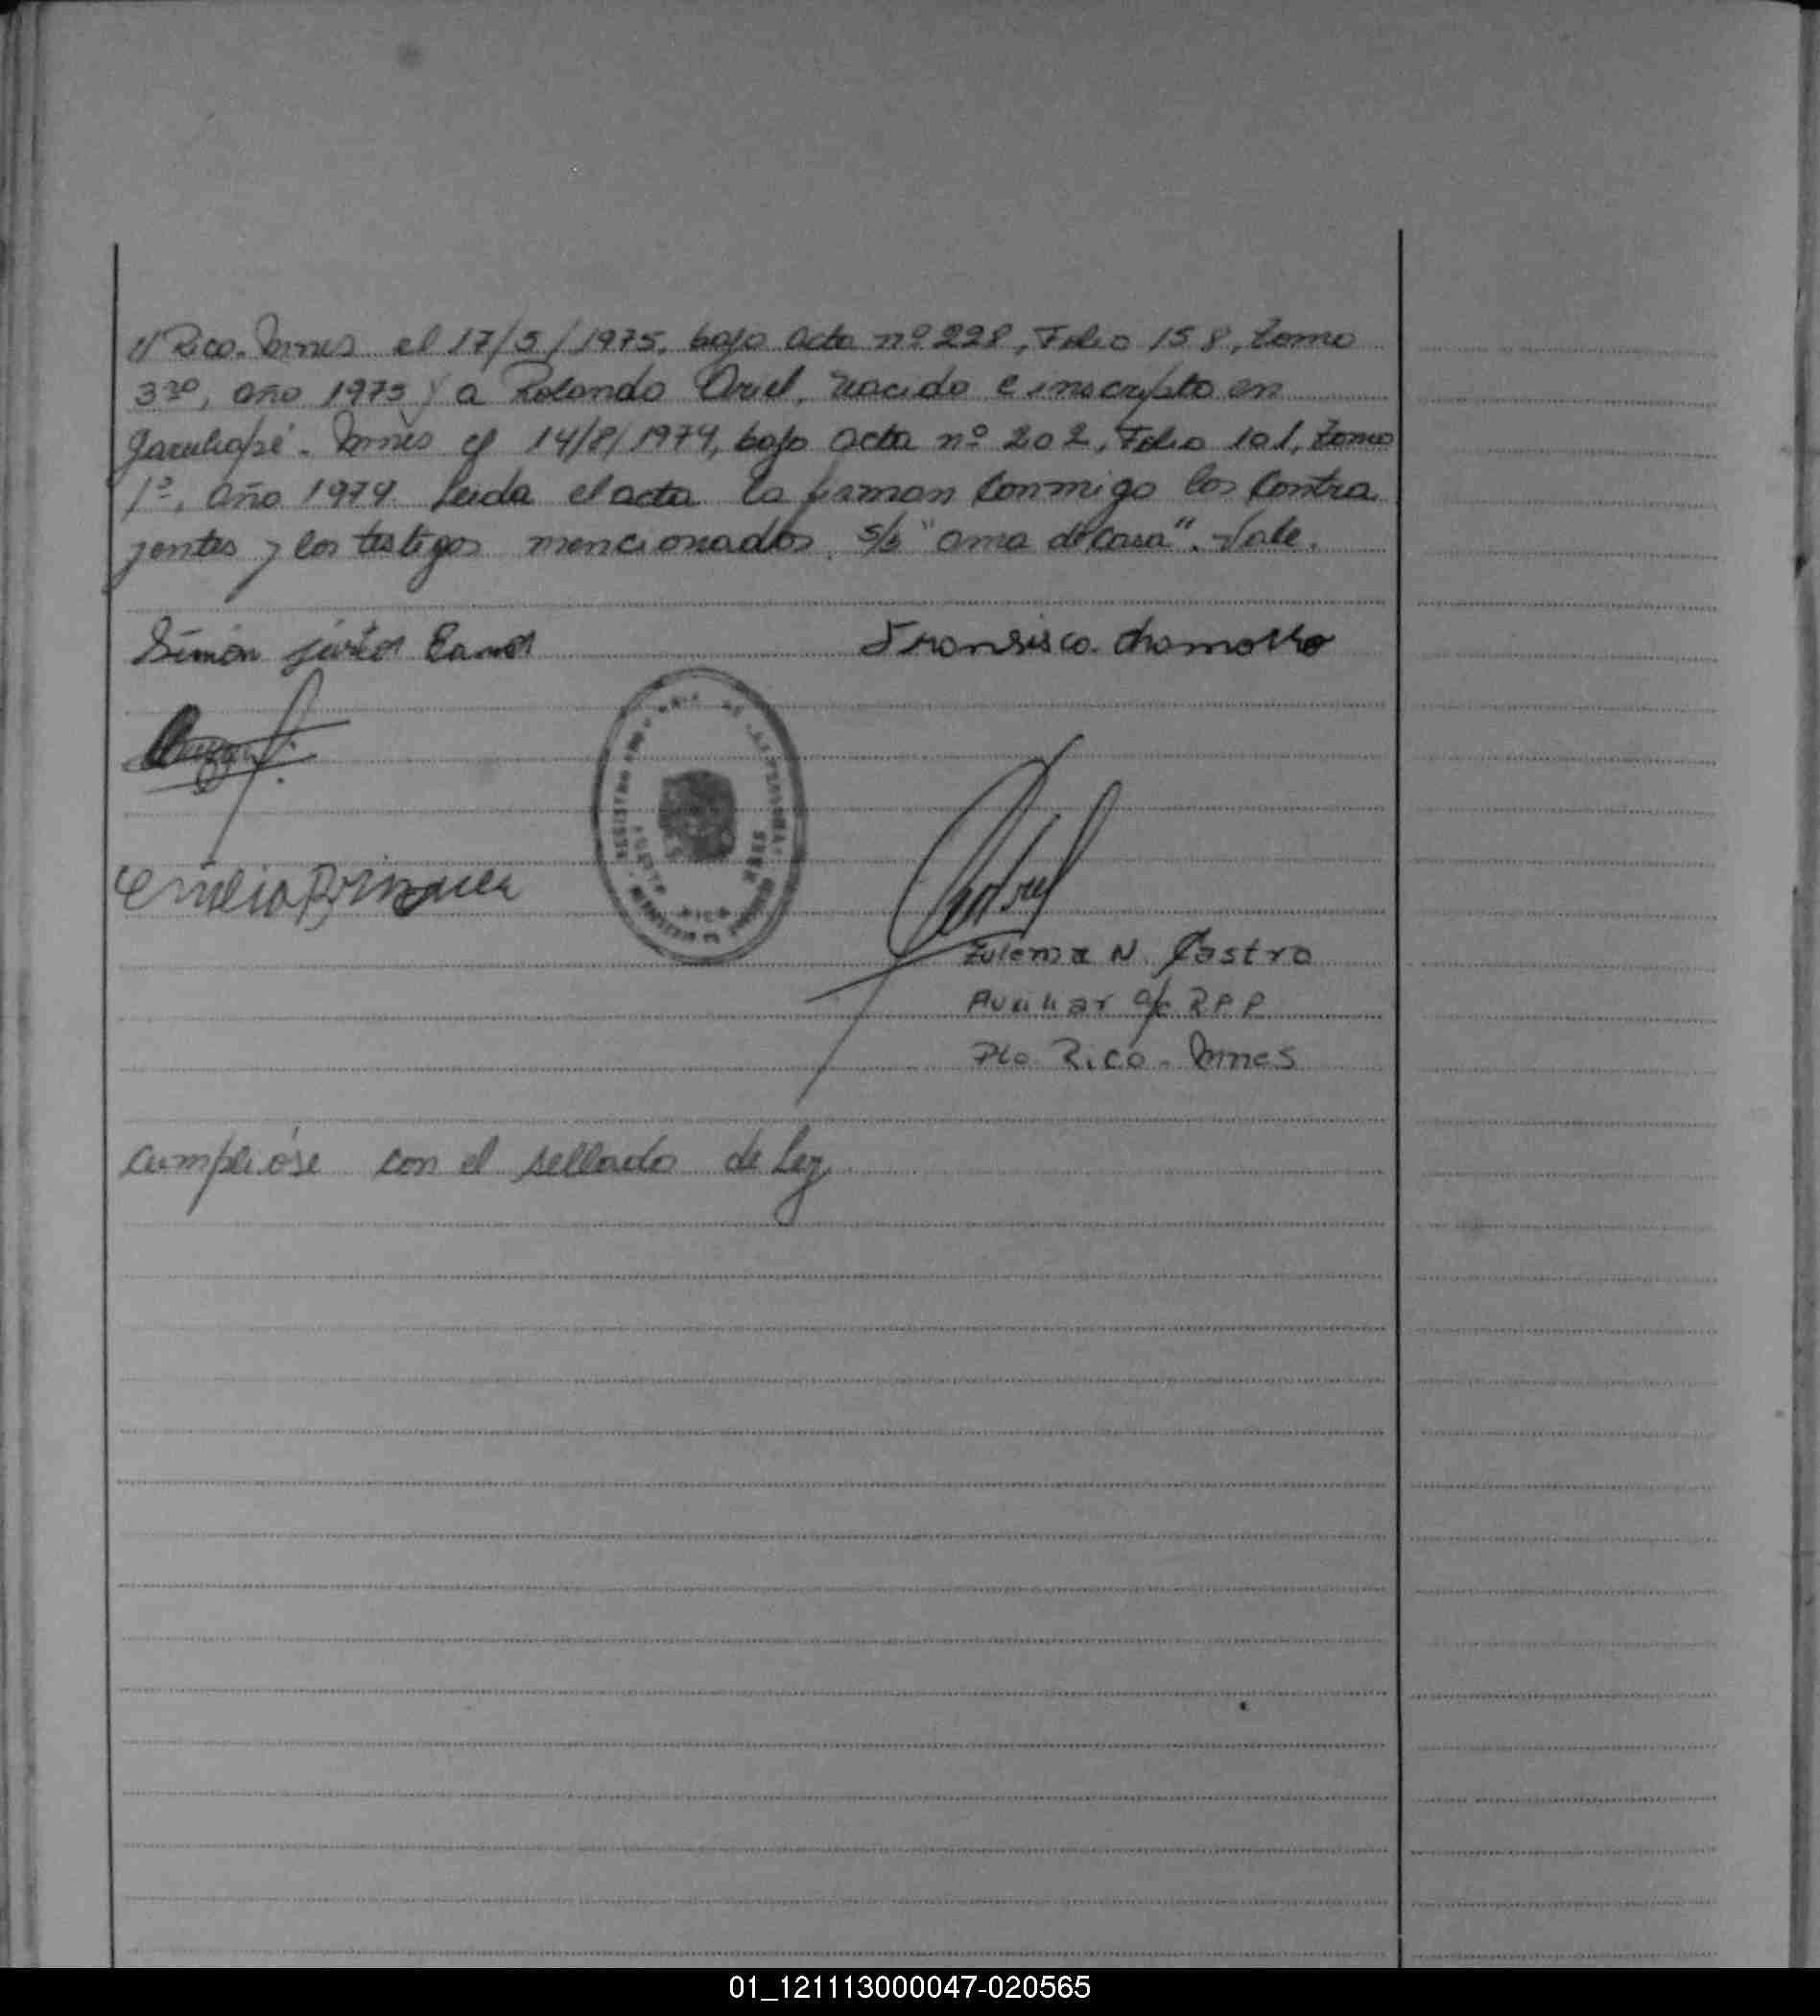 // Rico. Mnes el 17/5/1975, bajo acta nº 228, Folio 158, tomo
3ro, año 1975 y a Rolando Oriel, nacido e inscripto en
Garuhapé. Mnes el 14/8/1979, bajo acta nº 202, Folio 101, tomo
1º, año 1979. Leida el acta la firman conmigo los contra
yentes y los testigos mencionados. s/b "ama de casa". Vale.
Simón Ramos
Fransisco. chamorro
Emilio
Zulema N. Castro
Auxiliar a/c RPP
Pto. Rico. Mnes
REGISTRO
RICO
cumplióse con el sellado de Ley.
01_121113000047-020565